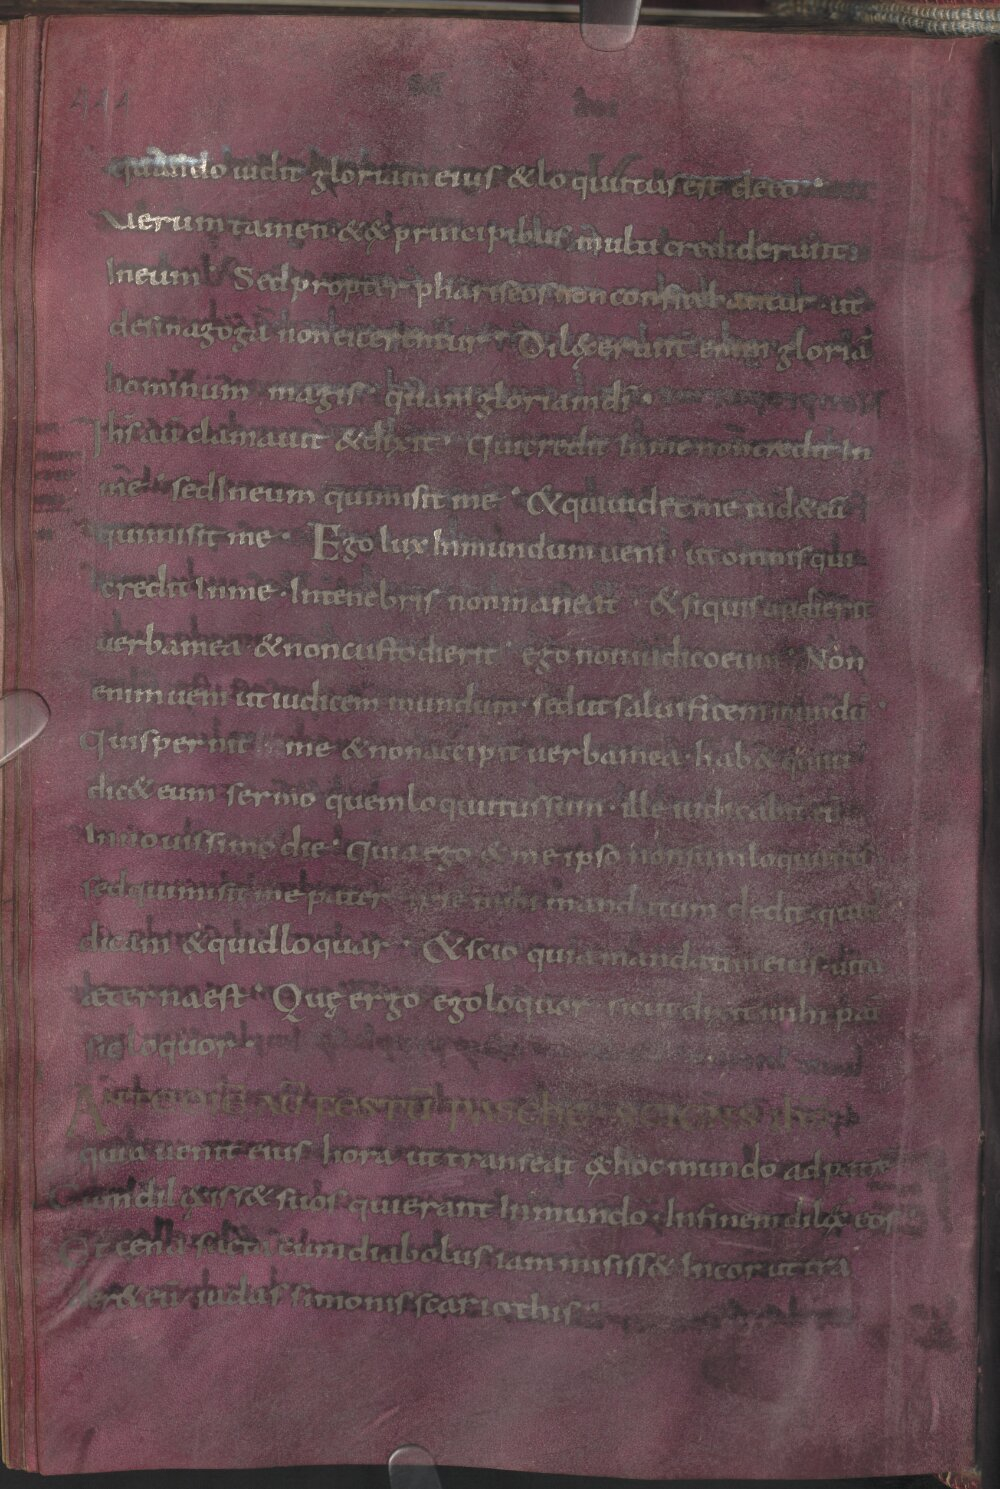 quando uidit gloriam eius & loquutus est deeo
Uerumtamen & exprincipibus multi crediderunt
Ineum Sed propter phariseos non confitebantur · ut
desinagoga non eicerentur · Dilexerunt enim gloriā
hominum magis · quam gloriam dī ·
Ihs aū clamauit & dixit · Qui credit Inme non credit In
me · sed Ineum qui misit me · & qui uidet me uid& eū
qui misit me · Ego lux Inmundum ueni · ut omnis qui
credit Inme · Intenebris non maneat · & siquis audierit
uerba mea & non custodierit · ego non iudico eum · Non
enim ueni ut iudicem mundum · sed ut saluificem mundū ·
Qui spernit me & non accipit uerba mea · hab& qui iu
dic& eum sermo quem loquutus sum · ille iudicabit eū
In nouissimo die · Quia ego ex me ipso non sum loquutus
sed qui misit me pater ipse mihi mandatum dedit · quid
dicam & quid loquar · & scio quia mandatum eius · uita
aeterna est · Quę ergo ego loquor sicut dixit mihi pat
sic loquor ·
Ante diē aū festū paschę sciens ihs
quia uenit eius hora ut transeat exhoc mundo ad patrē
Cum dilexiss& suos qui erant Inmundo · Infinem dilex eos
Et cena facta cum diabolus iam misiss& Incor ut tra
der& eū iudas simonis scariothis